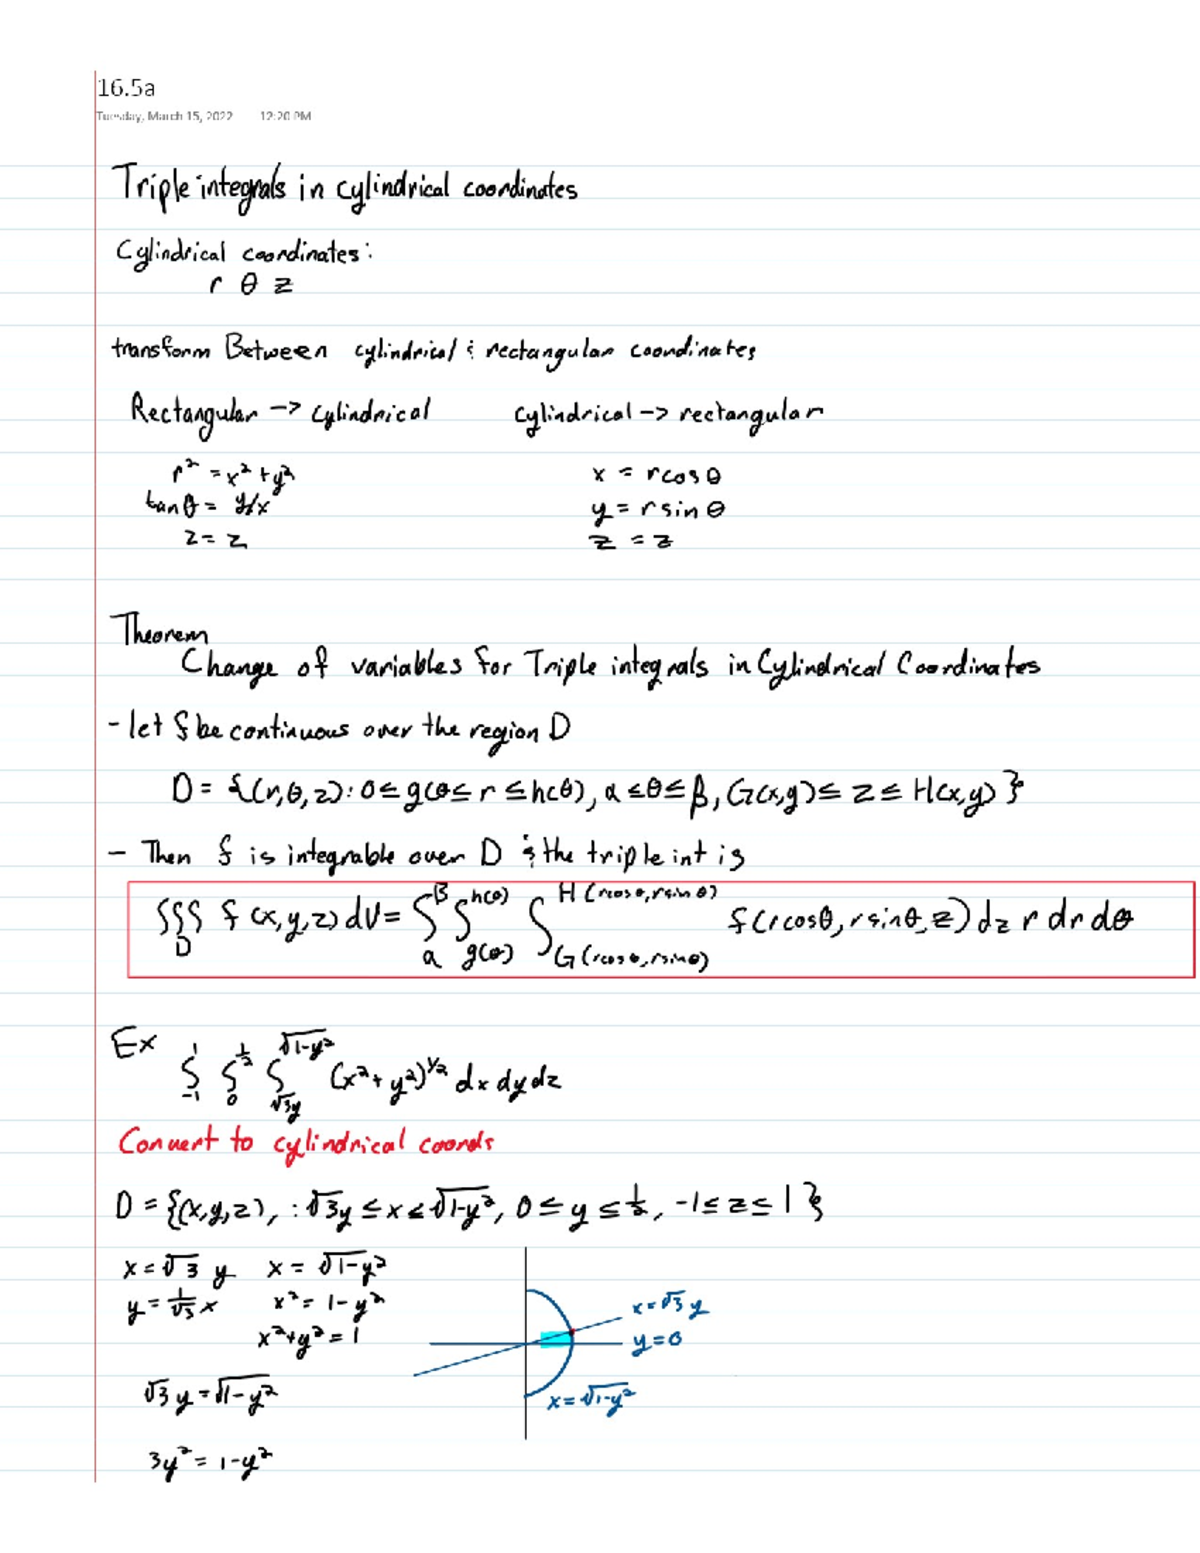 16.5a
Tuesday, March 15, 2022 12:20 PM
Triple integrals in cylindrical coordinates
Cylindrical coordinates:
r θ z
transform Between cylindrical & rectangular coordinates
Rectangular -> cylindrical cylindrical -> rectangular
r² = x² + y² x = rcosθ
tanθ = y/x y = rsinθ
z = z z = z
Theorem
Change of variables for Triple integrals in Cylindrical Coordinates
- let f be continuous over the region D
D = {(r,θ,z): 0 ≤ g(θ ≤ r ≤ h(θ), α ≤ θ ≤ β, G(x,y) ≤ z ≤ H(x,y)}
- Then f is integrable over D & the triple int is
∫∫∫_D f(x,y,z) dV = ∫_a^β ∫_{g(θ)}^{h(θ)} ∫_{G(rcosθ,rsinθ)}^{H(rcosθ,rsinθ)} f(rcosθ, rsinθ, z) dz r dr dθ
Ex ∫_{-1}^{1} ∫_0^{1/2} ∫_{√3y}^{√1-y²} (x² + y²)^{1/2} dx dy dz
Convert to cylindrical coords
D = {(x,y,z), : √3y ≤ x ≤ √1-y², 0 ≤ y ≤ 1/2, -1 ≤ z ≤ 1}
x = √3 y x = √1-y²
y = 1/√3 x x² = 1 - y²
x² + y² = 1
x = √3 y
y = 0
x = √1-y²
√3 y = √1-y²
3y² = 1 - y²